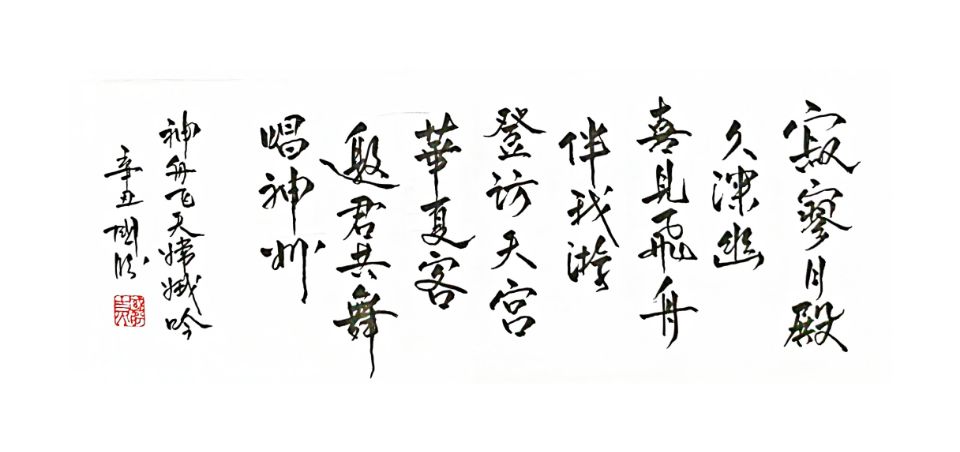 寂寥月殿
久深幽
喜見飛舟
伴我游
登訪天宮
華夏客
邀君共舞
唱神州
神舟飞天嫦娥吟
辛丑國勝